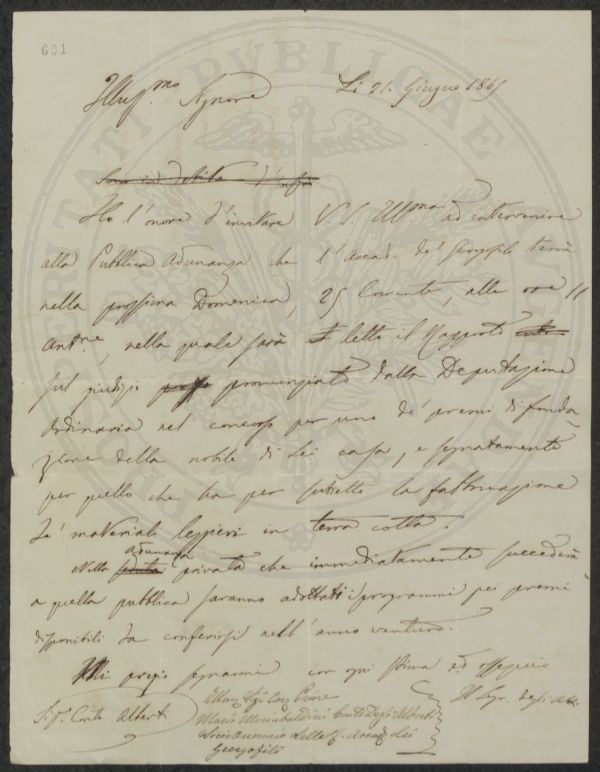 601
Li 21. Giugno 1865
Illuss.mo Signore
Sono in debito d'
Ho l'onore d'invitare V. S. Ill.ma ad intervenire
alla Pubblica Adunanza che l'Accad. de' Georgofili terrà
nella prossima Domenica, 25 Corrente, alle ore 11
antne, nella quale sarà letto il Rapporto
sul giudizio pronunziato dalla Deputazione
ordinaria nel concorso per uno de' premi di fonda-
zione della nobile di Lei casa, e segnatamente
per quello che ha per subietto la fabbricazione
de' materiali leggieri in terra cotta.
Nella adunanza privata che immediatamente succederà
a quella pubblica saranno adottati i programmi pei premi
disponibili da conferirsi nell'anno venturo.
Mi pregio segnarmi con ogni stima ed ossequio
Il Segr. degli Atti
Sig. Conte Alberti
Sig. Cav. Priore
Mario Mori Ubaldini Conte Degli Alberti
Socio Onorario Accad. dei
Georgofili